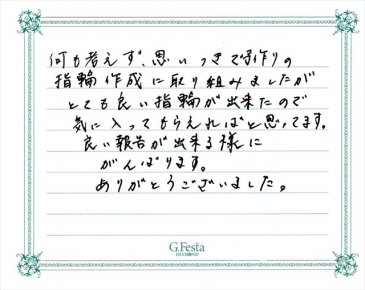 何も考えず、思いつきで手作りの
指輪作成に取り組みましたが
とても良い指輪が出来たので
気に入ってもらえればと思ってます。
良い報告が出来る様に
がんばります。
ありがとうございました。
G.Festa
DIAMOND